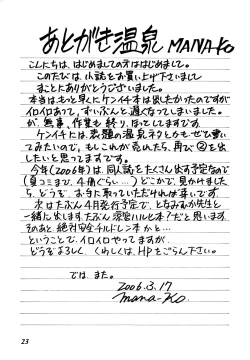 あとがき温泉 MANA-Ko
こんにちは、はじめましての方ははじめまして。
このたびは、小誌をお買い上げ下さいまして
まことにありがとうございました。
本当はもっと早くにケンイチ本は出したかったのですが
イロイロあって、ずいぶんと遅くなってしまいました。
が、無事、作業を終り、ほっとしてますです。
ケンイチには、表題の温泉ネタとかもぜひ書い
てみたいので、もしこれが売れたら、再び②を出
したいと思ってますです。
今年(2006年)は、同人誌をたくさん出す予定なので
(夏コミまで、4冊ぐらい…)どこかで、見かけました
ら、どうぞ、お手に取っていただければ幸いです。
次はたぶん4月発行予定で、となみみか先生と
一緒に出します。たぶん涼宮ハルヒ本?だと思います。
そのあと、絶対安全チルドレン本かと…
ということで、イロイロやってますが、
どうぞよろしく、くわしくは、HPをごらん下さい。
では、また。
2006.3.17
mana-Ko.
23